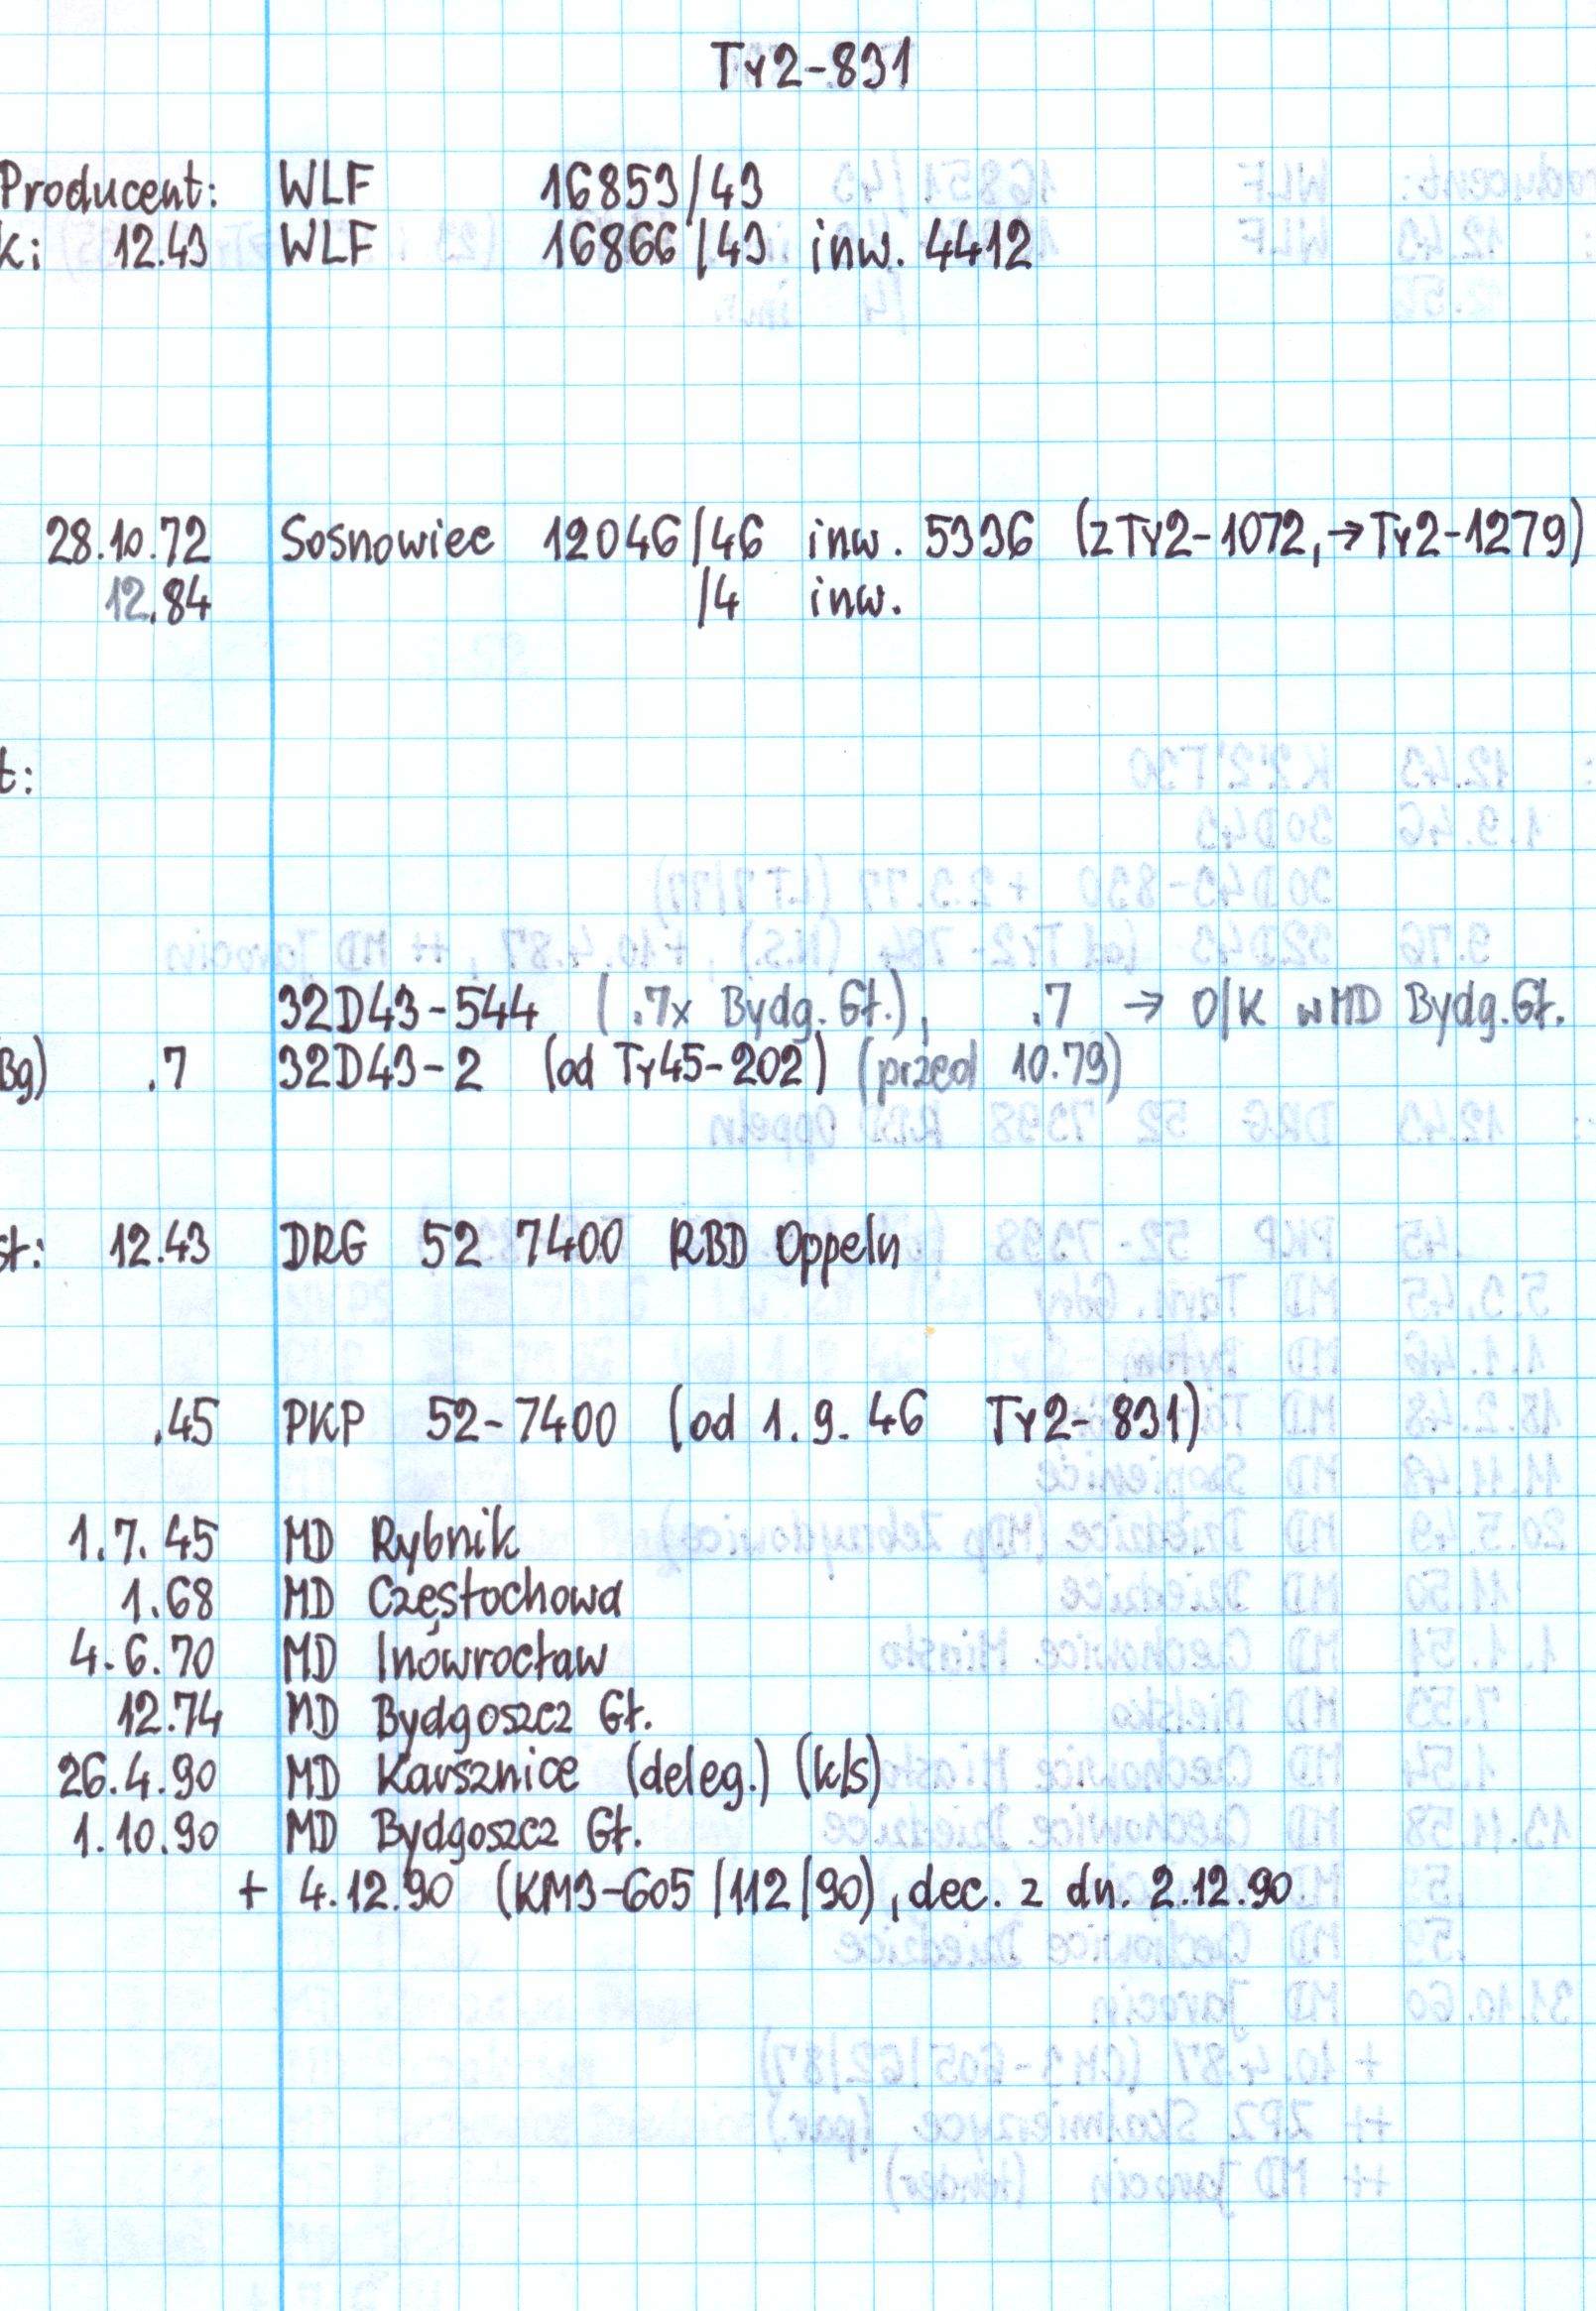 Ty2-831
Producent: WLF 16853/43
k: 12.43 WLF 16866/43 inw. 4412
28.10.72 Sosnowiec 12046/46 inw. 5336 (z Ty2-1072, → Ty2-1279)
12.84 /4 inw.
t:
32D43-544 ( .7x Bydg. Gł.), .7 → O/K w MD Bydg. Gł.
Bg) .7 32D43-2 (od Ty45-202) (przed 10.79)
st: 12.43 DRG 52 7400 RBD Oppeln
.45 PKP 52-7400 (od 1.9.46 Ty2-831)
1.7.45 MD Rybnik
1.68 MD Częstochowa
4.6.70 MD Inowrocław
12.74 MD Bydgoszcz Gł.
26.4.90 MD Karsznice (deleg.) (k/s)
1.10.90 MD Bydgoszcz Gł.
+ 4.12.90 (KM3-605/112/90), dec. z dn. 2.12.90